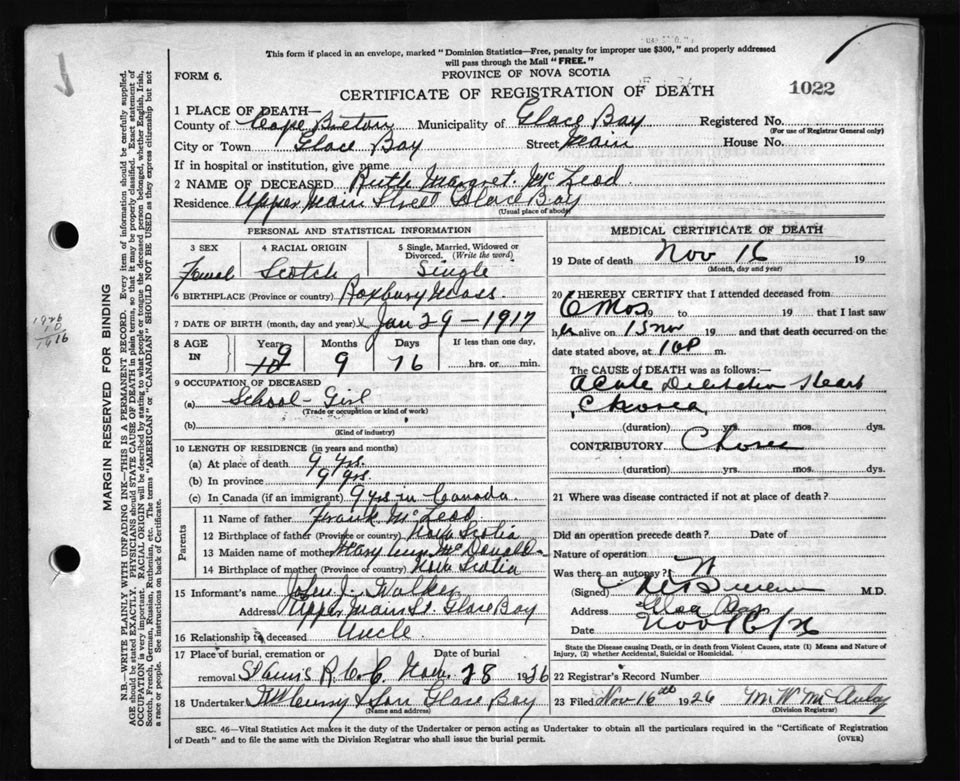 This form if placed in an envelope, marked "Dominion Statistics—Free, penalty for improper use $300," and properly addressed
will pass through the Mail "FREE."
FORM 6.
PROVINCE OF NOVA SCOTIA
CERTIFICATE OF REGISTRATION OF DEATH
1022
1 PLACE OF DEATH—
County of Cape Breton Municipality of Glace Bay Registered No.
(For use of Registrar General only)
City or Town Glace Bay Street Main House No.
If in hospital or institution, give name
2 NAME OF DECEASED Ruth Margret McLeod
Residence Upper Main Street Glace Bay
(Usual place of abode)
PERSONAL AND STATISTICAL INFORMATION
3 SEX
Femal
4 RACIAL ORIGIN
Scotch
5 Single, Married, Widowed or
Divorced. (Write the word)
Single
6 BIRTHPLACE (Province or country) Roxbury Mass.
7 DATE OF BIRTH (month, day and year) Jan 29 - 1917
8 AGE IN
Years
9
Months
9
Days
16
If less than one day,
hrs. or min.
9 OCCUPATION OF DECEASED
(a) School-Girl
(Trade or occupation or kind of work)
(b)
(Kind of industry)
10 LENGTH OF RESIDENCE (in years and months)
(a) At place of death 9 yrs.
(b) In province 9 yrs.
(c) In Canada (if an immigrant) 9 yrs in Canada.
Parents
11 Name of father Frank McLeod
12 Birthplace of father (Province or country) Nova Scotia
13 Maiden name of mother Mary McDonald
14 Birthplace of mother (Province or country) Nova Scotia
15 Informant's name John J. Walker
Address Upper Main St. Glace Bay
16 Relationship to deceased Uncle
17 Place of burial, cremation or removal Date of burial
R.C.C Nov. 1926
18 Undertaker & Son Glace Bay
(Name and address)
MEDICAL CERTIFICATE OF DEATH
19 Date of death Nov 16 19
(Month, day and year)
20 I HEREBY CERTIFY that I attended deceased from
6 Mos 19 to 19 that I last saw
her alive on 15 nov 19 and that death occurred on the
date stated above, at m.
The CAUSE of DEATH was as follows:
Acute Heart
Chorea
(duration) yrs. mos. dys.
CONTRIBUTORY Chorea
(duration) yrs. mos. dys.
21 Where was disease contracted if not at place of death?
Did an operation precede death? Date of
Nature of operation
Was there an autopsy? N
(Signed) M.D.
Address Glace Bay
Date Nov 16/26
State the Disease causing Death, or in death from Violent Causes, state (1) Means and Nature of
Injury, (2) whether Accidental, Suicidal or Homicidal.
22 Registrar's Record Number
23 Filed Nov 16th 1926
(Division Registrar)
SEC. 46—Vital Statistics Act makes it the duty of the Undertaker or person acting as Undertaker to obtain all the particulars required in the "Certificate of Registration
of Death" and to file the same with the Division Registrar who shall issue the burial permit.
(OVER)
MARGIN RESERVED FOR BINDING
N.B.—WRITE PLAINLY WITH UNFADING INK—THIS IS A PERMANENT RECORD. Every item of information should be carefully supplied.
AGE should be stated EXACTLY. PHYSICIANS should STATE CAUSE OF DEATH in plain terms, so that it may be properly classified. Exact statement of
OCCUPATION is very important. RACIAL ORIGIN will be described by stating to what people or tongue the deceased person belonged, whether English, Irish,
Scotch, French, German, Russian, Ruthenian, etc. The terms "AMERICAN" or "CANADIAN" SHOULD NOT BE USED as they express citizenship but not
a race or people. See instructions on back of Certificate.